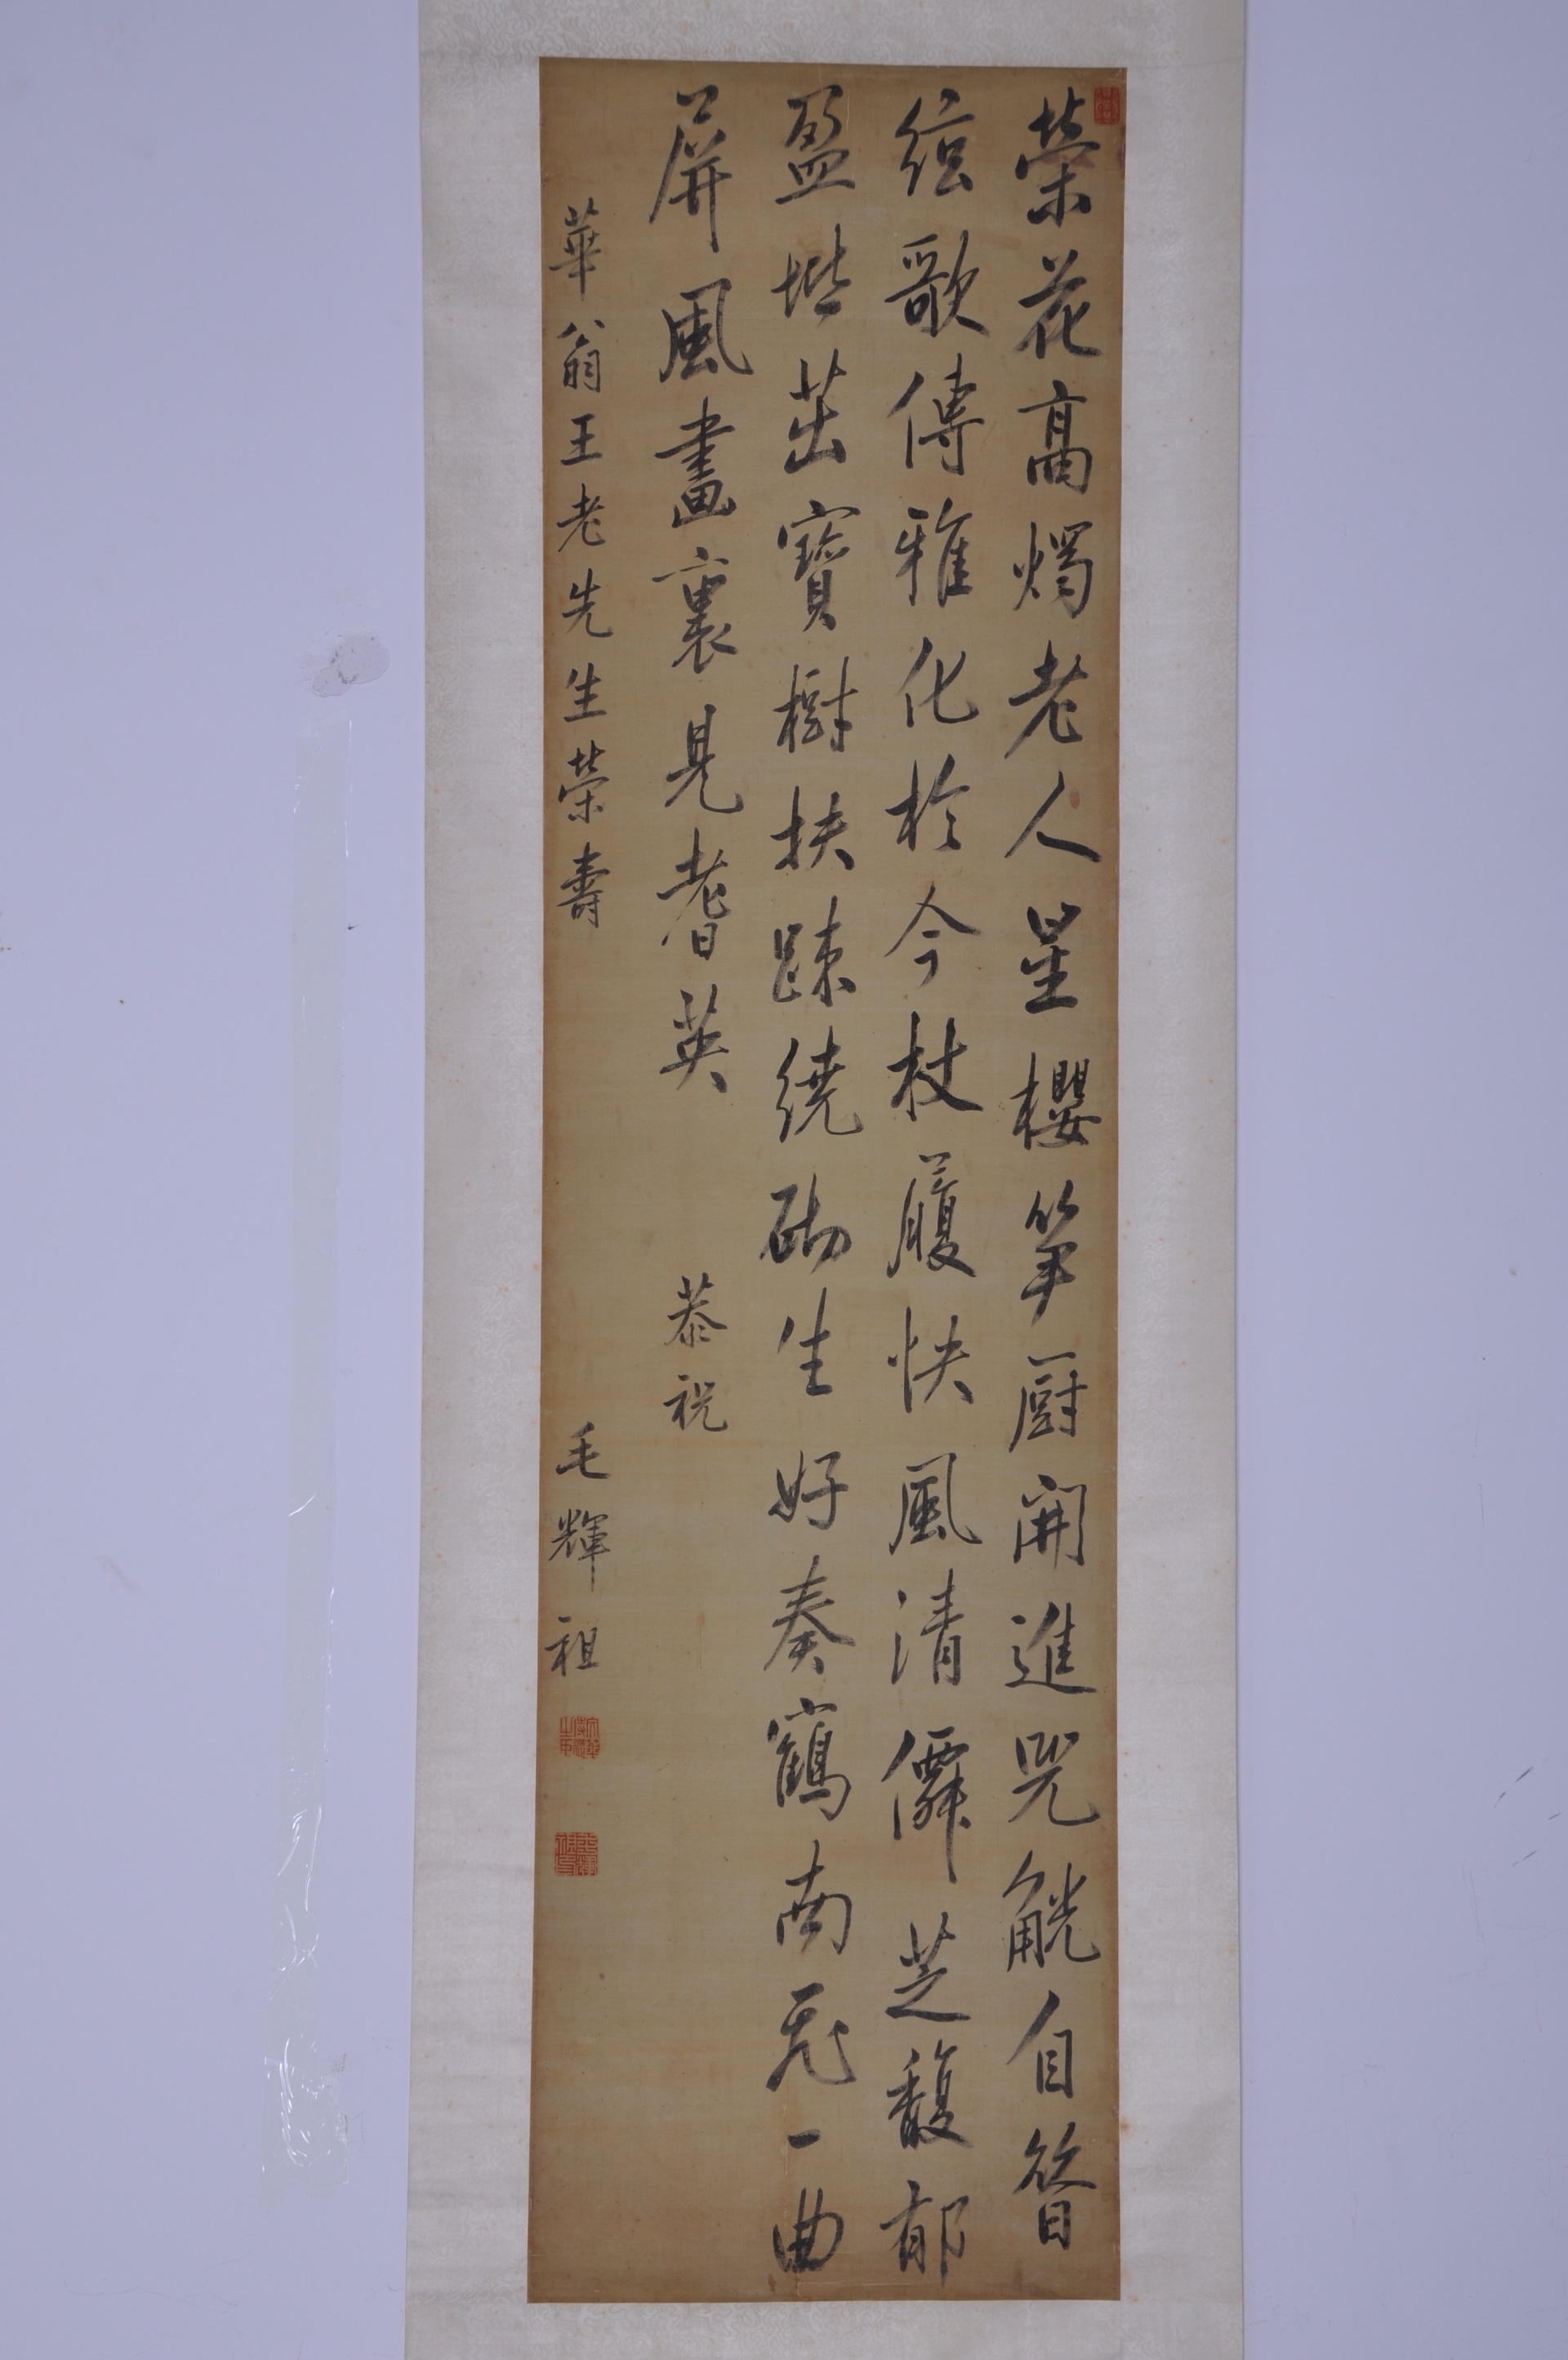 榮花高燭老人星櫻笋厨開進兕觥自昝
絃歌傳雅化於今杖履快風清僊芝馥郁
盈堦茁寳樹扶踈繞砌生好奏鶴南飛一曲
屏風畫裏見耆英
恭祝
華翁王老先生榮壽
毛輝祖